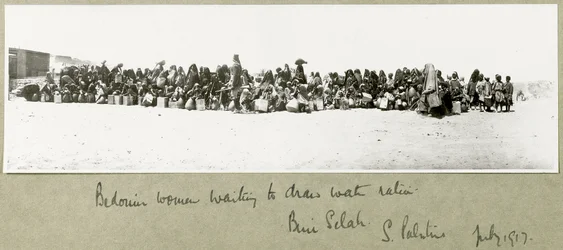 Bedouin women waiting to draw water ration.
Beni Selah.
S. Palestine July 1917.